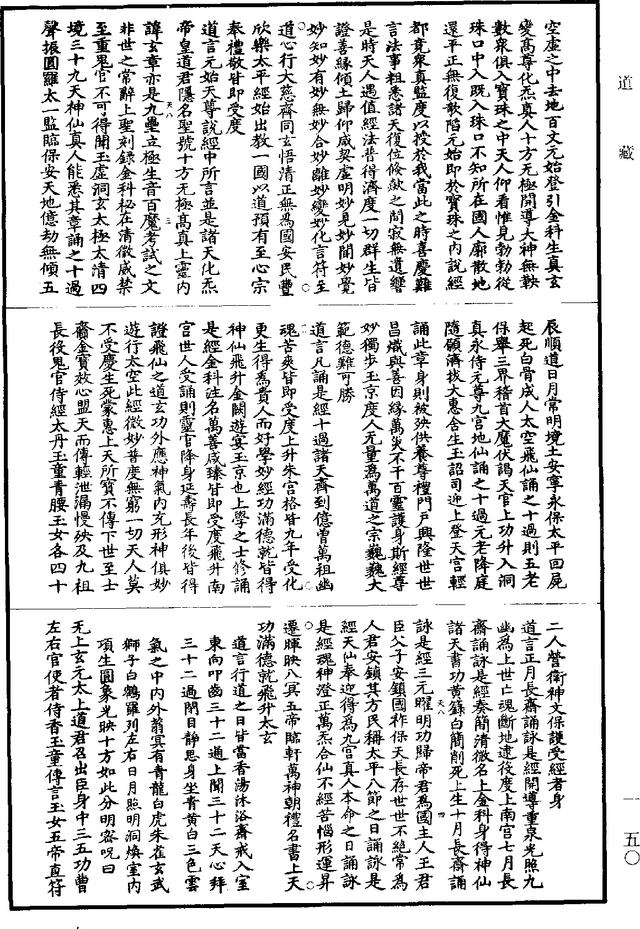 空虛之中去地百丈元始登引金科生真玄
變高尊化炁真人十方無極開導大神無鞅
數衆俱入寶珠之中天人仰看惟見勃勃從
珠口中入既入珠口不知所在國人廓散地
還平正無復欹陷元始即於寶珠之內說經
都竟衆真監度以授於我當此之時喜慶難
言法事粗悉諸天復位倏欻之間寂無遺響
是時天人遇值經法普得濟度一切群生皆
證善緣傾土歸仰咸契虛明妙見妙聞妙覺
妙知妙有妙無妙合妙離妙變妙化言符至
道心行大慈齊同玄悟清正無為國安民豐
欣樂太平經始出教一國以道預有至心宗
奉禮敬皆即受度
道言元始天尊說經中所言並是諸天化炁
帝皇道君隱名聖號十方無極高真上靈內
諱玄章亦是九壘立極生音百魔考試之文
非世之常辭上聖刻録金科秘在清微威禁
至重鬼官不可得聞玉虛洞玄太極太清四
境三十九天神仙真人能悉其章誦之十過
聲振圓羅太一監臨保安天地億劫無傾五
辰順道日月常明境土安寧永保太平回屍
起死白骨成人太空飛仙誦之十過則五老
保舉三界稽首大魔伏謁天官上功升入洞
真永侍元尊九宮地仙誦之十過元老降庭
隨願濟拔大惠含生玉詔司迎上登天宮輕
誦此章身則被殃供養尊禮門戶興隆世世
昌熾與善因緣萬災不干百靈護身斯經尊
妙獨步玉京度人无量為萬道之宗巍巍大
範德難可勝
道言凡誦是經十過諸天齊到億曾萬祖幽
魂苦爽皆即受度上升朱宮格皆九年受化
更生得為貴人而好學妙經功滿德就皆得
神仙飛升金闕遊宴玉京也上學之士修誦
是經金科注名萬善咸臻皆即受度飛升南
宮世人受誦則靈官降身延壽長年後皆得
證飛仙之道玄功外應神氣內充形神俱妙
遊行太空此經微妙普度無窮一切天人莫
不受慶生死蒙惠上天所寶不傳下世至士
齎金寶效心盟天而傳輕泄漏慢殃及九祖
長役鬼官侍經太丹玉童青腰玉女各四十
二人營衛神文保護受經者身
道言正月長齋誦詠是經開導重泉光照九
幽為上世亡魂斷地逮役度上南宮七月長
齋誦詠是經奏簡清微名上金科身得神仙
諸天書功黃籙白簡削死上生十月長齋誦
詠是經三元曜明功歸帝君為國主人王君
臣父子安鎮國祚保天長存世世不絕常為
人君安鎮其方民稱太平八節之日誦詠是
經天仙奉迎得為九宮真人本命之日誦詠
是經魂神澄正萬炁合仙不經苦惱形運昇
遷暉映八冥五帝臨軒萬神朝禮名書上天
功滿德就飛升太玄
道言行道之日皆當香湯沐浴齋戒入室
東向叩齒三十二通上聞三十二天心拜
三十二過閉目靜思身坐青黃白三色雲
氣之中內外蓊冥有青龍白虎朱雀玄武
獅子白鶴羅列左右日月照明洞煥室內
項生圓象光映十方如此分明密呪曰
无上玄元太上道君召出臣身中三五功曹
左右官使者侍香玉童傳言玉女五帝直符
天八
三
天八
四
道藏
一
五〇